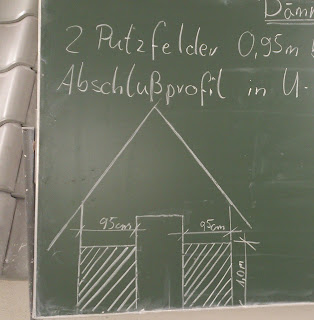 Dämm
2 Putzfelder 0,95m
Abschlußprofil in U.
95cm 95cm
1,0m